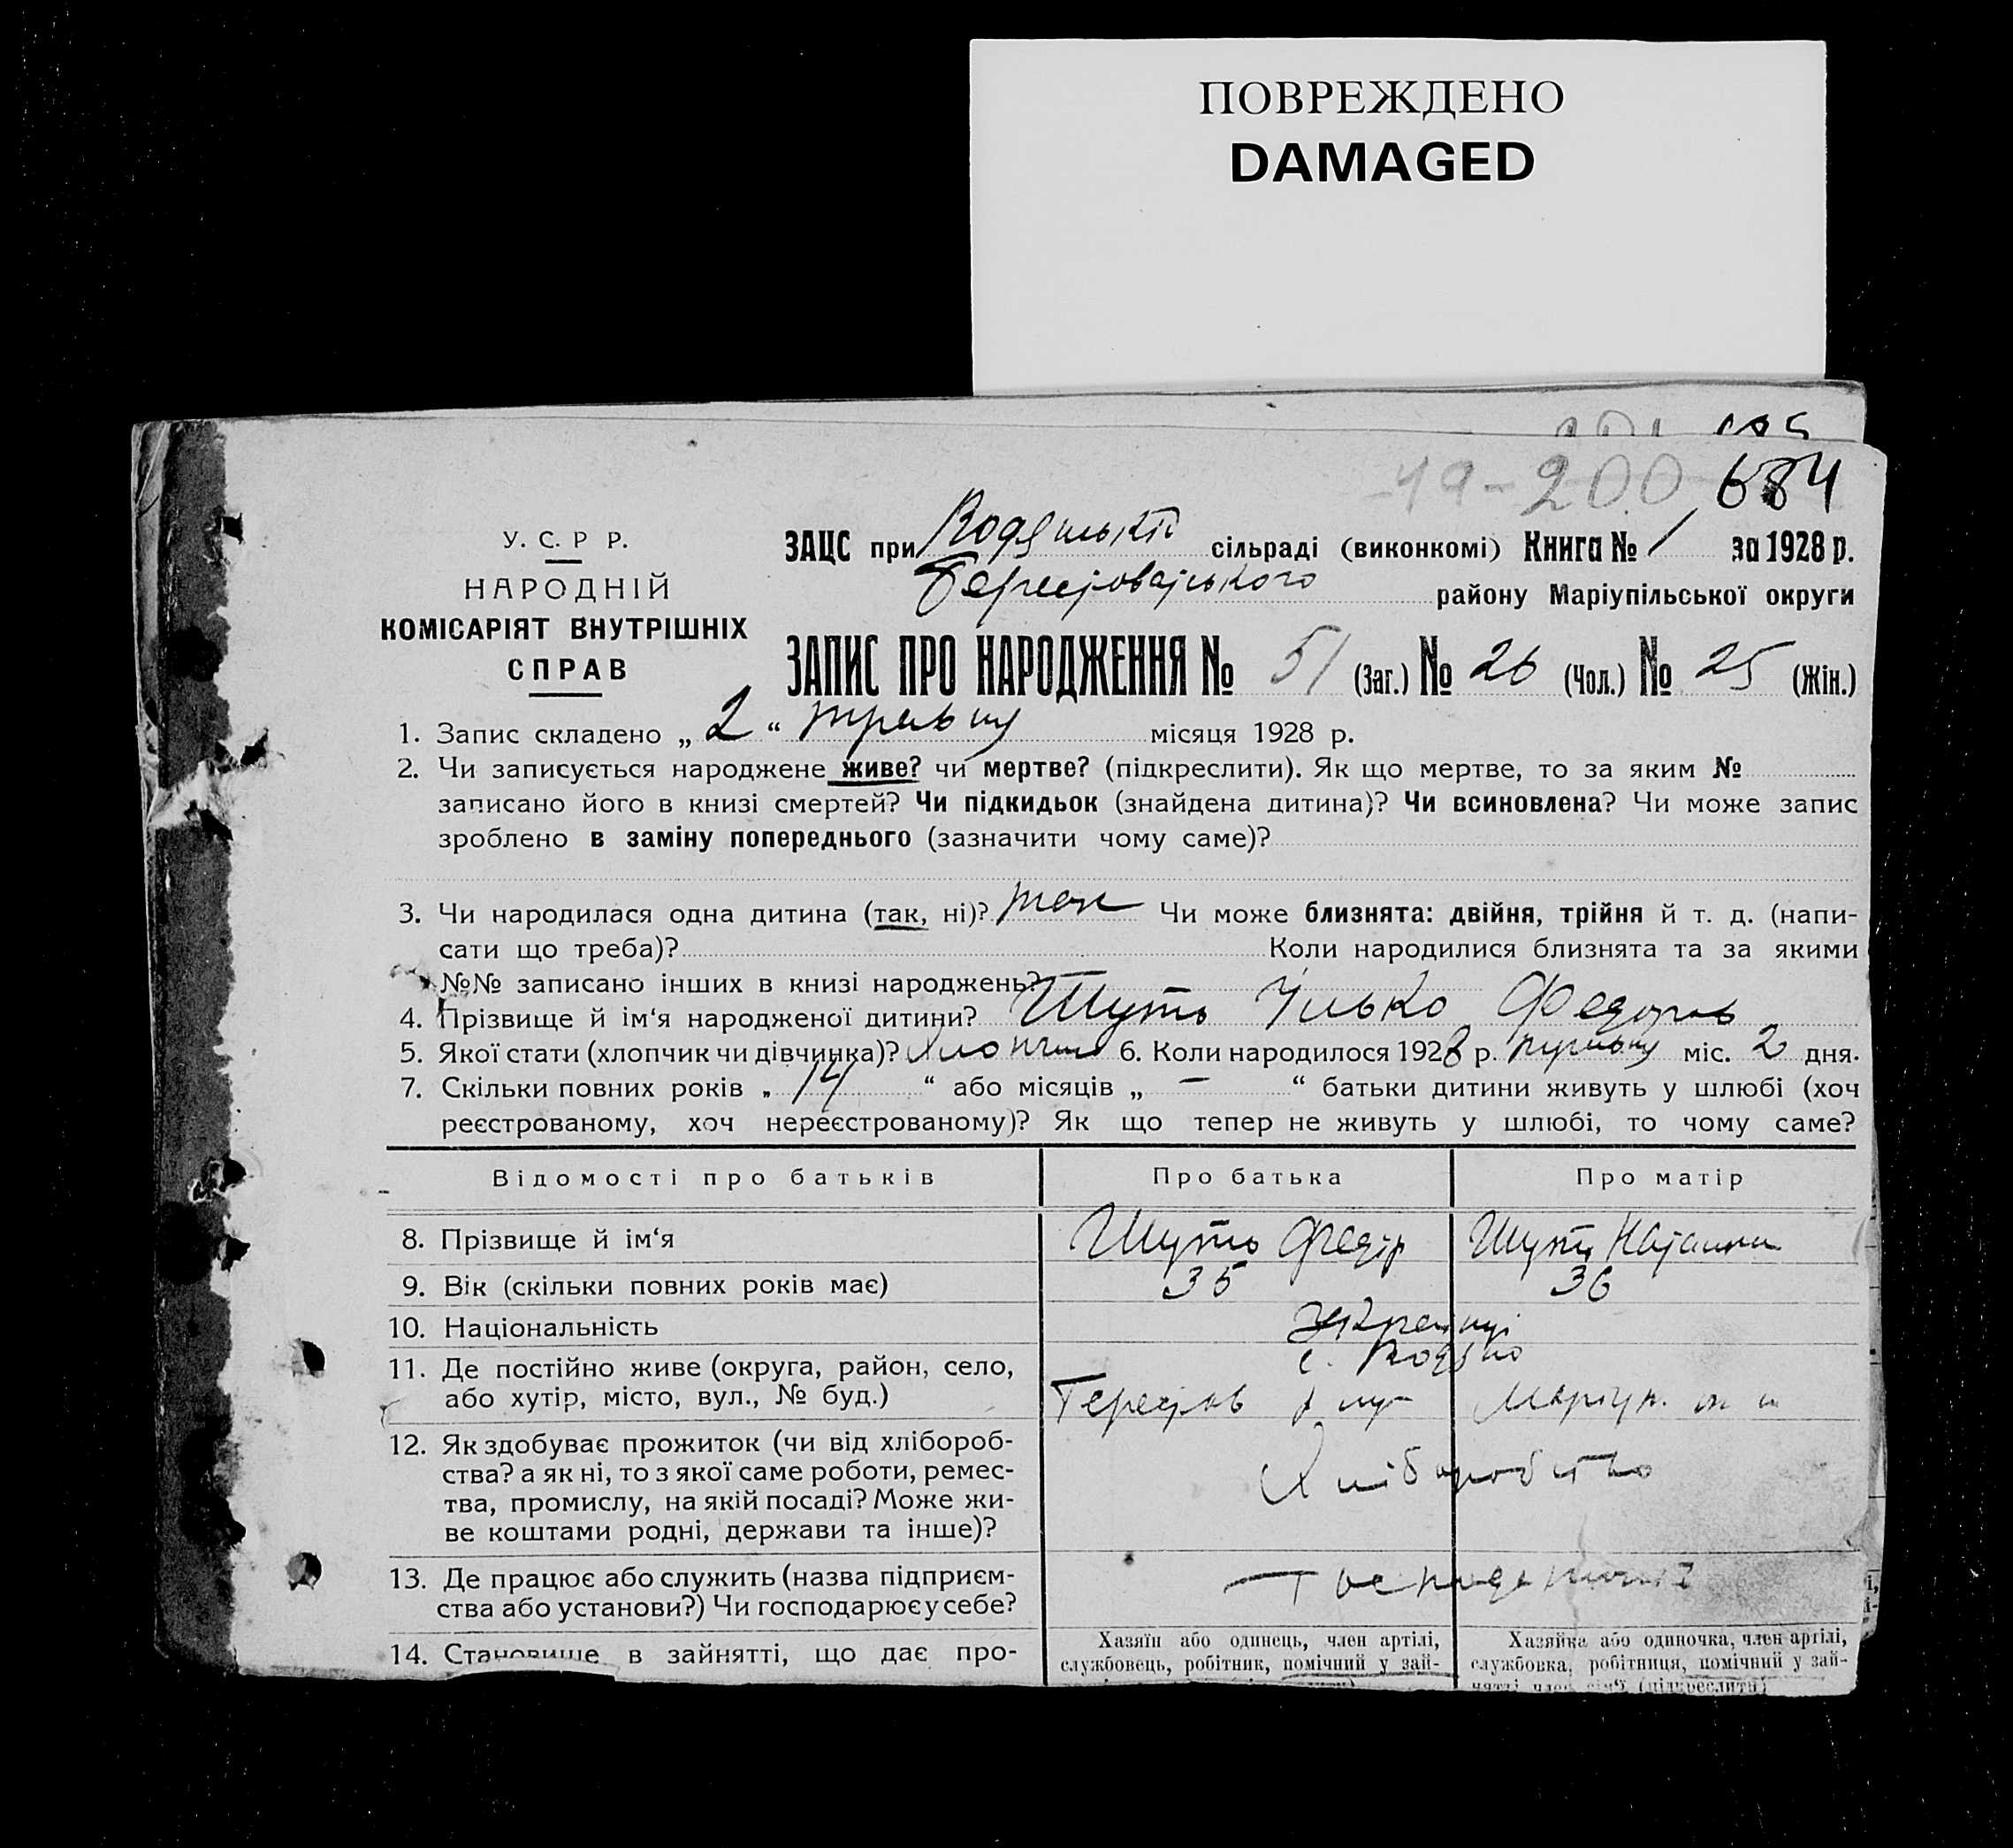 ПОВРЕЖДЕНО
DAMAGED
200 684
У. С. Р Р.
НАРОДНІЙ
КОМІСАРІЯТ ВНУТРІШНІХ
СПРАВ
ЗАЦС при сільраді (виконкомі) Книга № 1 за 1928 р.
району Маріупільської округи
ЗАПИС ПРО НАРОДЖЕННЯ № 51 (Заг.) № 26 (Чол.) № 25 (Жін.)
1. Запис складено „ 2 “ травня місяця 1928 р.
2. Чи записується народжене живе? чи мертве? (підкреслити). Як що мертве, то за яким №
записано його в книзі смертей? Чи підкидьок (знайдена дитина)? Чи всиновлена? Чи може запис
зроблено в заміну попереднього (зазначити чому саме)?
3. Чи народилася одна дитина (так, ні)? так Чи може близнята: двійня, трійня й т. д. (напи-
сати що треба)? Коли народилися близнята та за якими
№№ записано інших в книзі народжень?
4. Прізвище й ім‘я народженої дитини? Шуть Ілько Федоров
5. Якої стати (хлопчик чи дівчинка)? Хлопчик 6. Коли народилося 1928 р. міс. 2 дня.
7. Скільки повних років „ 14 “ або місяців „ — “ батьки дитини живуть у шлюбі (хоч
реєстрованому, хоч нереєстрованому)? Як що тепер не живуть у шлюбі, то чому саме?
Відомості про батьків Про батька Про матір
8. Прізвище й ім‘я Шуть Федір Шуть
9. Вік (скільки повних років має) 35 36
10. Національність Українці
11. Де постійно живе (округа, район, село, с. Водяно
або хутір, місто, вул., № буд.)
12. Як здобуває прожиток (чи від хлібороб- Хліборобство
ства? а як ні, то з якої саме роботи, ремес-
тва, промислу, на якій посаді? Може жи-
ве коштами родні, держави та інше)?
13. Де працює або служить (назва підприєм-
ства або установи?) Чи господарює у себе?
14. Становище в зайнятті, що дає про-
Хазяїн або одинець, член артілі,
службовець, робітник, помічний у зай-
Хазяйка або одиночка, член артілі,
службовка, робітниця, помічний у зай-
нятті член сім‘ї (підкреслити)